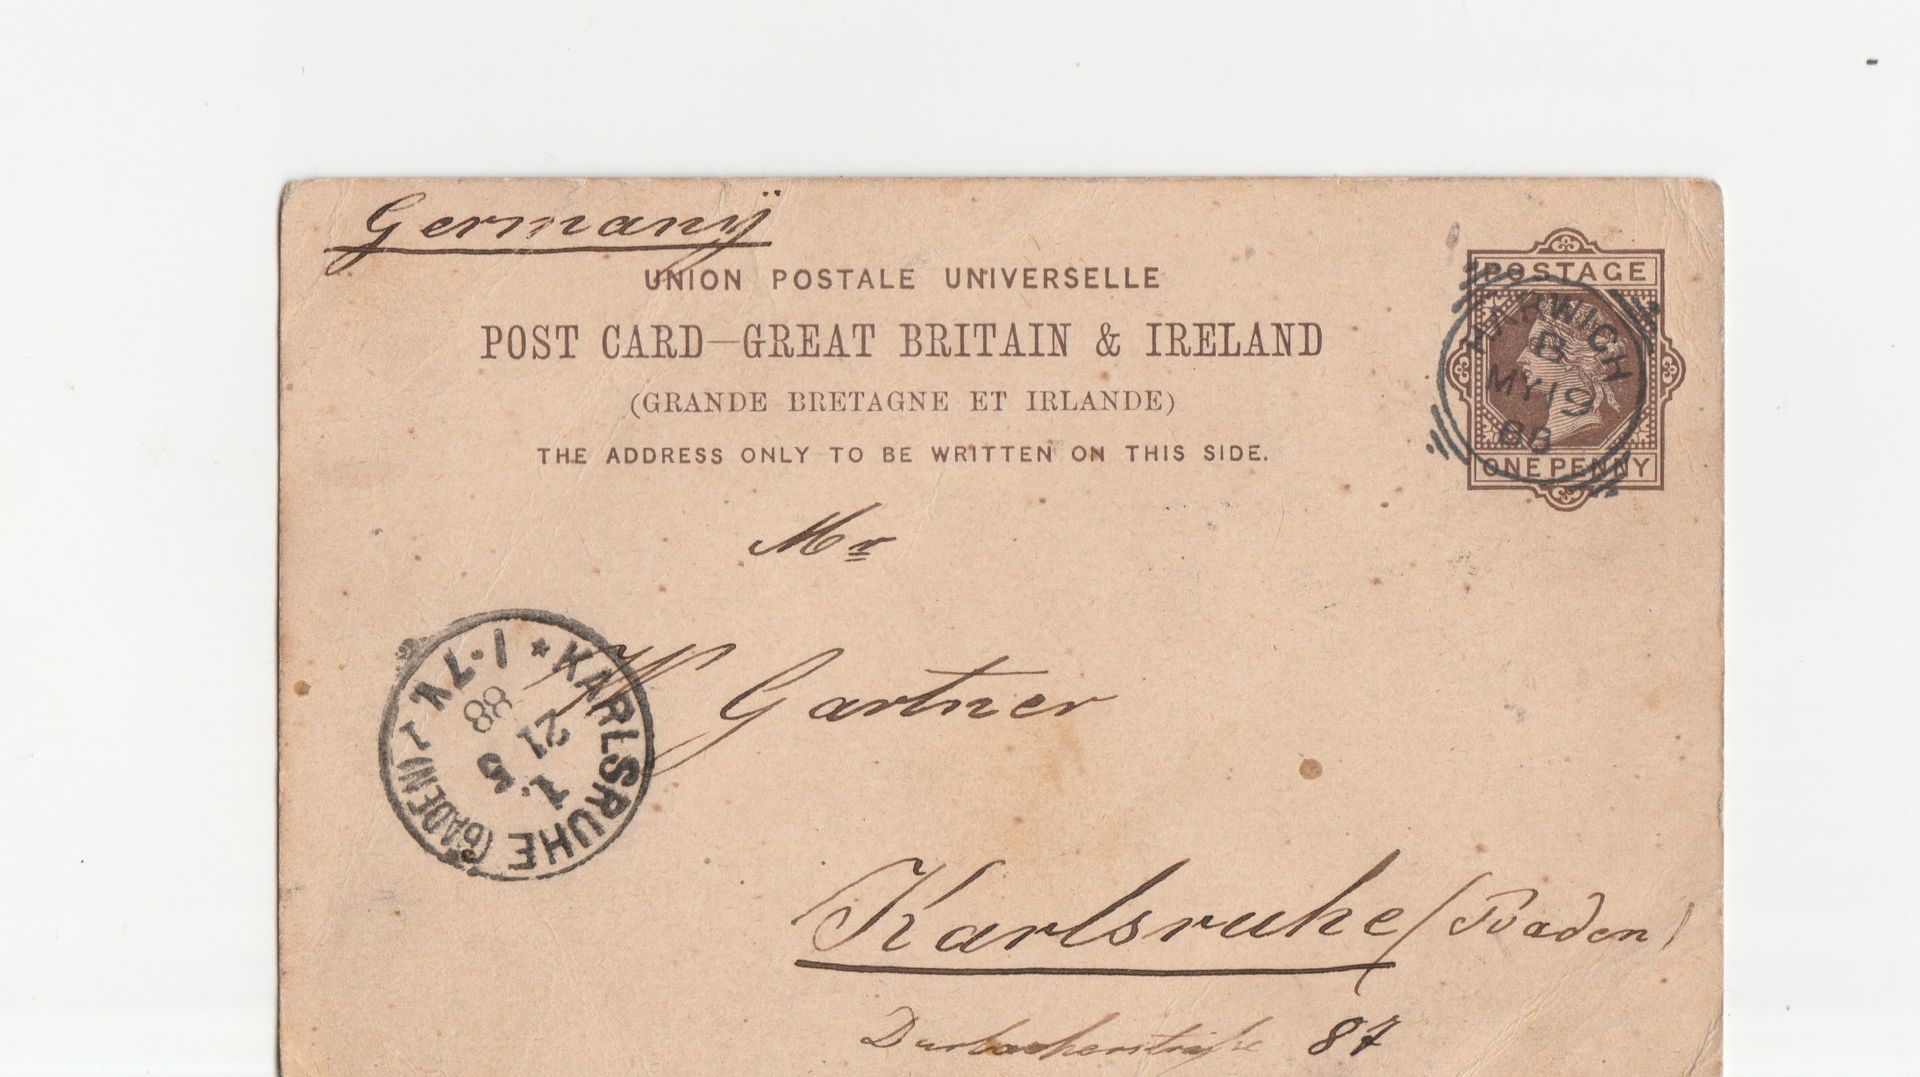 Germany
UNION POSTALE UNIVERSELLE
POST CARD—GREAT BRITAIN & IRELAND
(GRANDE BRETAGNE ET IRLANDE)
THE ADDRESS ONLY TO BE WRITTEN ON THIS SIDE.
POSTAGE
HARWICH
B
MY 19
88
ONE PENNY
Mr
W Gartner
KARLSRUHE (BADEN) 1
21 5
88
Karlsruhe (Baden)
Durlacherstraße 87